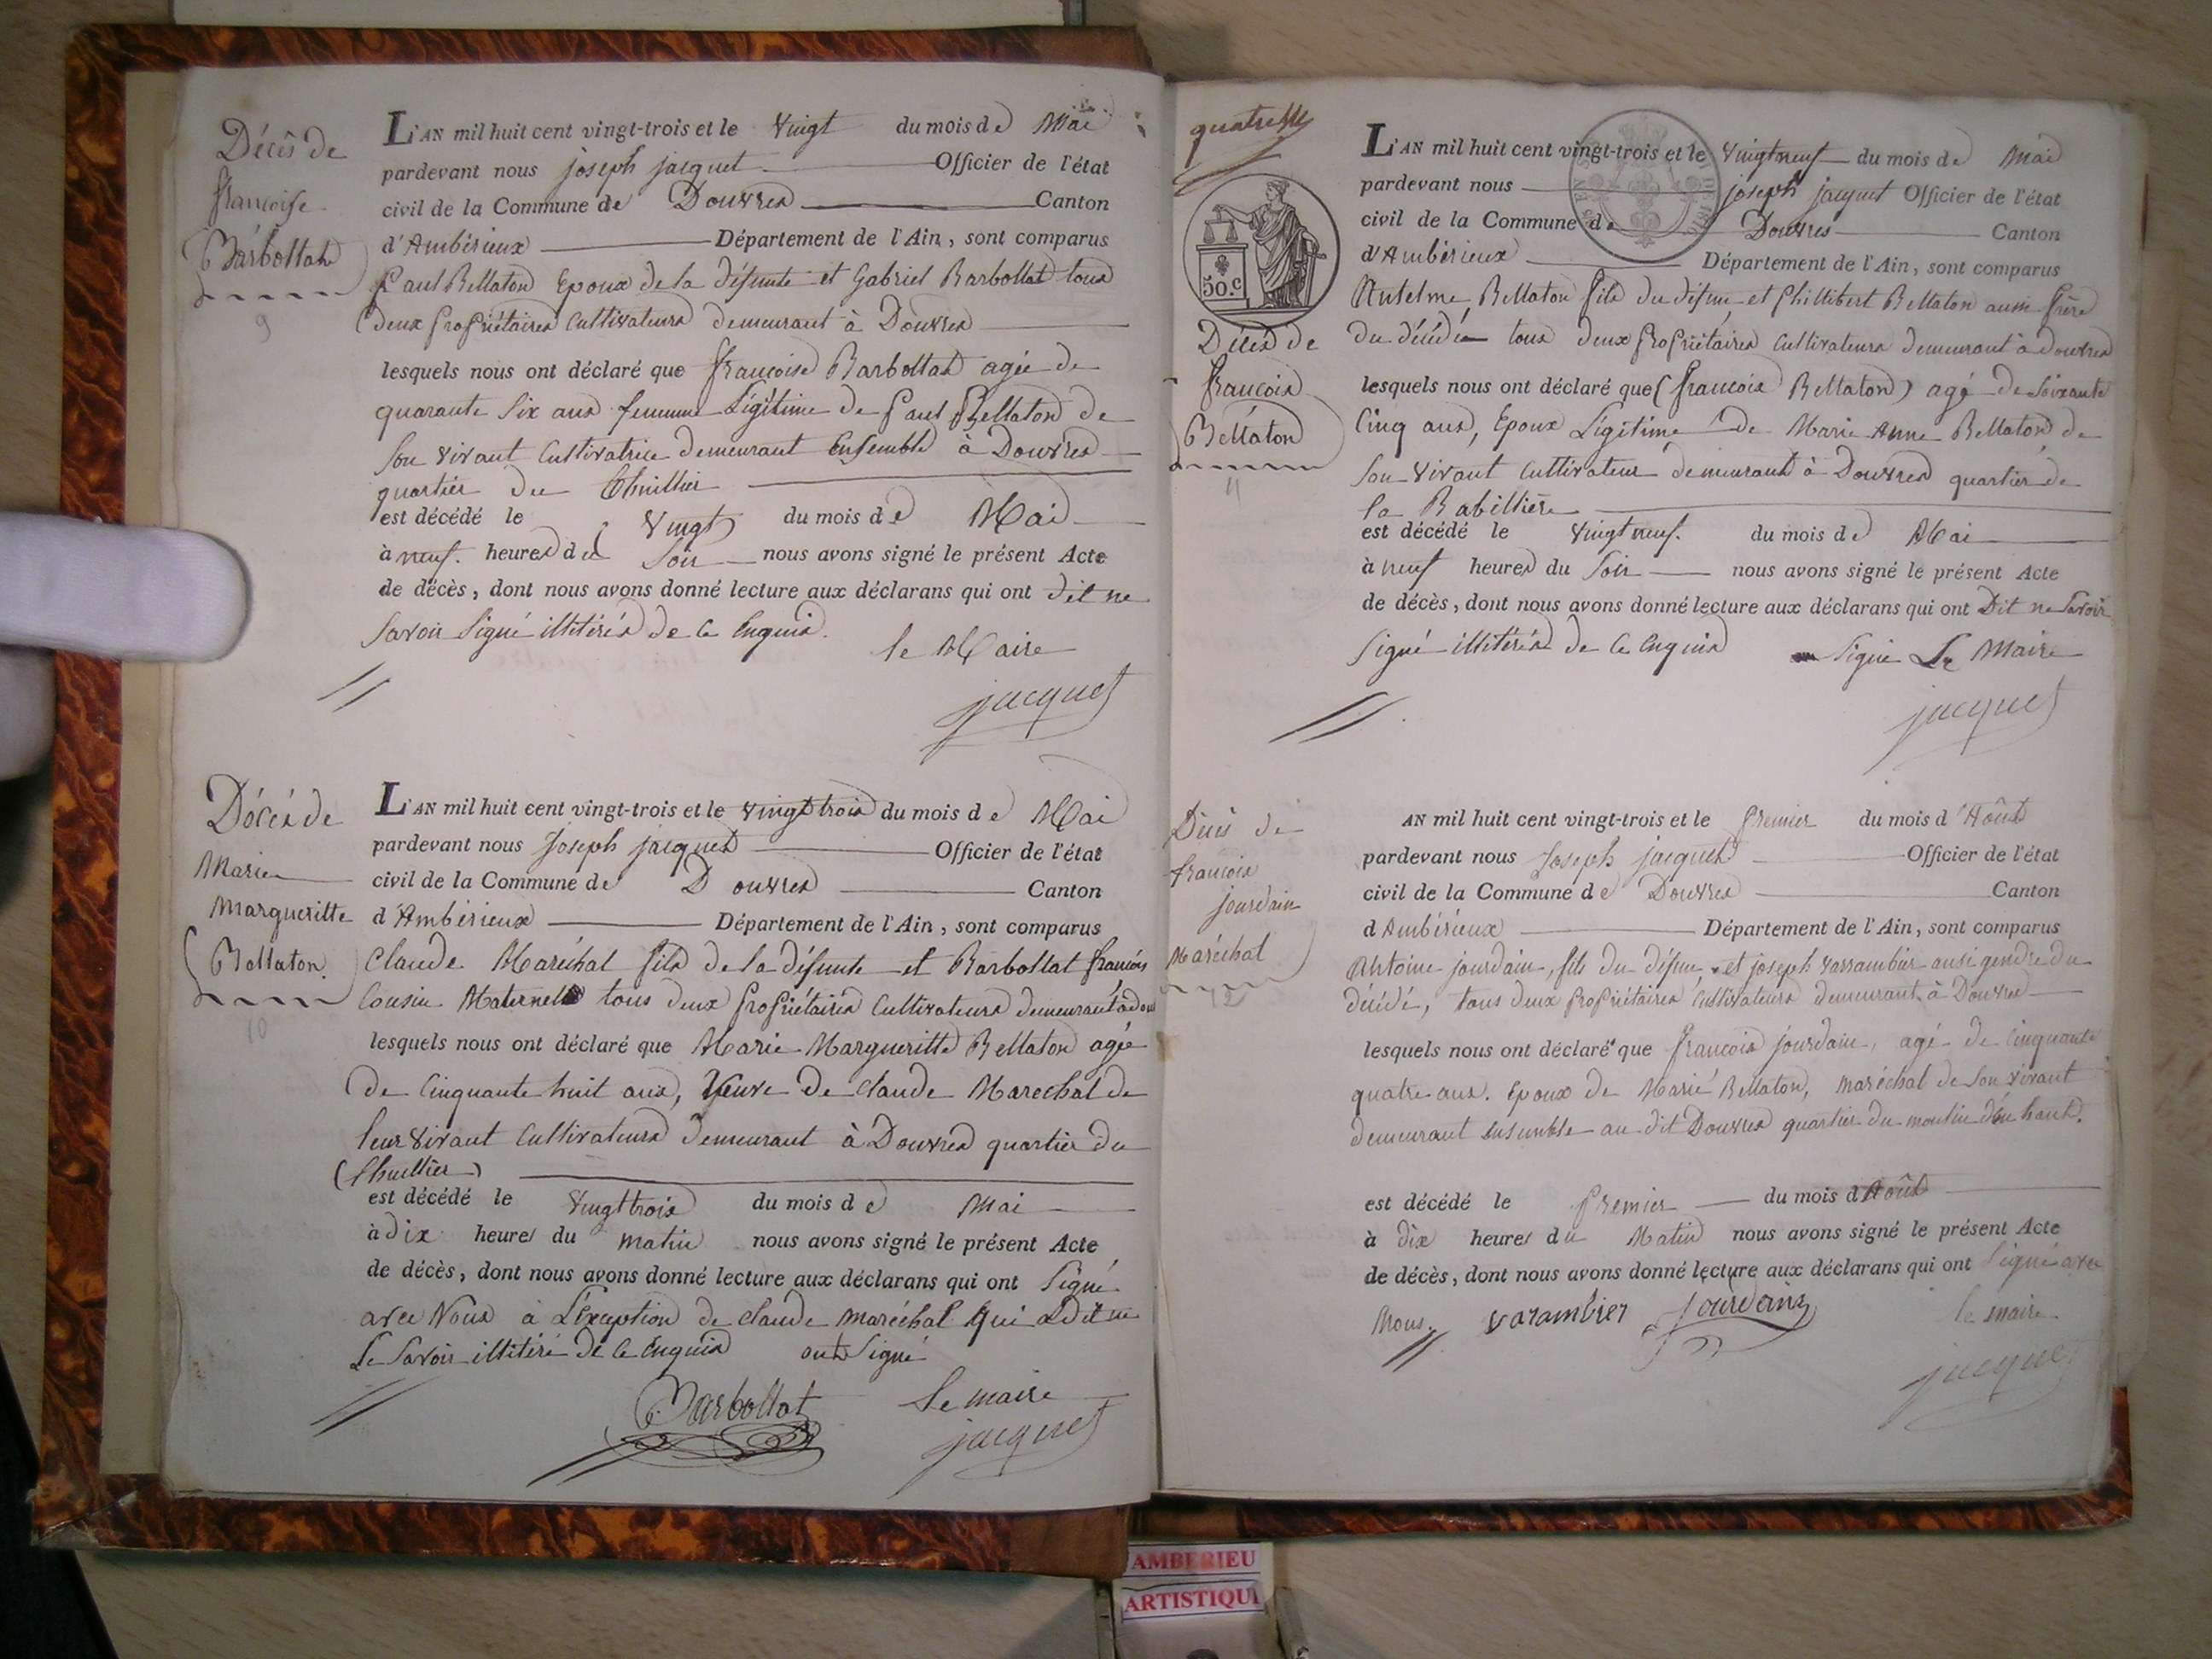 Décès de
françoise
Barbollat
9
L'AN mil huit cent vingt-trois et le vingt du mois de Mai
pardevant nous joseph jacquet Officier de l'état
civil de la Commune de Douvres Canton
d'Ambérieux Département de l'Ain, sont comparus
Paul Bellaton Epoux de la défunte et Gabriel Barbollat tous
deux propriétaires Cultivateurs demeurant à Douvres
lesquels nous ont déclaré que françoise Barbollat agée de
quarante Six ans femme Légitime de Paul Bellaton de
Son vivant Cultivatrice demeurant Ensemble à Douvres
quartier du Thuillier
est décédé le vingt du mois de Mai
à neuf heures du Soir nous avons signé le présent Acte
de décès, dont nous avons donné lecture aux déclarans qui ont dit ne
Savoir Signé illitérés de ce Enquis.
le Maire
jacquet
Décès de
Marie
Margueritte
Bellaton
10
L'AN mil huit cent vingt-trois et le vingt trois du mois de Mai
pardevant nous Joseph jacquet Officier de l'état
civil de la Commune de Douvres Canton
d'Ambérieux Département de l'Ain, sont comparus
Claude Maréchal fils de la défunte et Barbollat françois
Cousin Maternelle tous deux propriétaires Cultivateurs demeurant à dou
lesquels nous ont déclaré que Marie Margueritte Bellaton agée
de Cinquante huit ans, Veuve de Claude Marechal de
leur vivant Cultivateurs demeurant à Douvres quartier du
(Thuillier)
est décédé le vingt trois du mois de Mai
à dix heures du matin nous avons signé le présent Acte
de décès, dont nous avons donné lecture aux déclarans qui ont Signé
avec Nous à L'exception de claude maréchal qui a dit ne
Le Savoir illitéré de ce Enquis ont Signé
Barbollat le maire
jacquet
quatre
50.c
Décès de
françois
Bellaton
11
L'AN mil huit cent vingt-trois et le vingt neuf du mois de Mai
pardevant nous joseph jacquet Officier de l'état
civil de la Commune de Douvres Canton
d'Ambérieux Département de l'Ain, sont comparus
Antelme Bellaton fils du défun et Phillibert Bellaton aussi frère
du décédé tous deux propriétaires Cultivateurs demeurant à douvres
lesquels nous ont déclaré que (françois Bellaton) agé de Soixante
Cinq ans, Epoux Légitime de Marie Anne Bellaton de
Son vivant Cultivateur demeurant à Douvres quartier de
la Babillière
est décédé le vingt neuf du mois de Mai
à neuf heures du Soir nous avons signé le présent Acte
de décès, dont nous avons donné lecture aux déclarans qui ont Dit ne Savoir
Signé illitérés de ce Enquis Signé Le Maire
jacquet
Décès de
françois
jourdain
Maréchal
12
AN mil huit cent vingt-trois et le premier du mois d'Août
pardevant nous Joseph jacquet Officier de l'état
civil de la Commune de Douvres Canton
d'Ambérieux Département de l'Ain, sont comparus
Antoine jourdain, fils du défun, et joseph varrambier aussi gendre du
décédé, tous deux propriétaires Cultivateurs demeurant à Douvres
lesquels nous ont déclaré que françois jourdain, agé de Cinquante
quatre ans. Epoux de Marie Bellaton, maréchal de Son vivant
demeurant ensemble au dit Douvres quartier du moulin d'en haut.
est décédé le premier du mois d'Août
à dix heures du Matin nous avons signé le présent Acte
de décès, dont nous avons donné lecture aux déclarans qui ont Signé avec
Nous. varambier Jourdain le maire
jacquet
AMBERIEU
ARTISTIQU